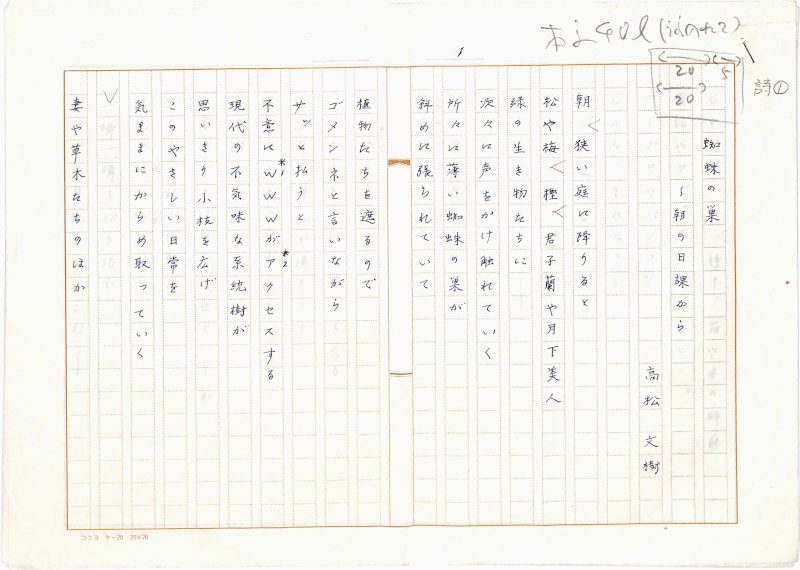 詩①
20
5
20
蜘蛛の巣
～朝の日課から
高松文樹
朝 狭い庭に降りると
松や梅 樫 君子蘭や月下美人
緑の生き物たちに
次々に声をかけ触れていく
所々に薄い蜘蛛の巣が
斜めに張られていて
植物たちを遮るので
ゴメンネと言いながら
サッと払うと
不意にWWWがアクセスする
*1
*2
現代の不気味な系統樹が
思いきり小枝を広げ
このやさしい日常を
気ままにからめ取っていく
妻や草木たちのほか
コクヨ ケー20 20×20